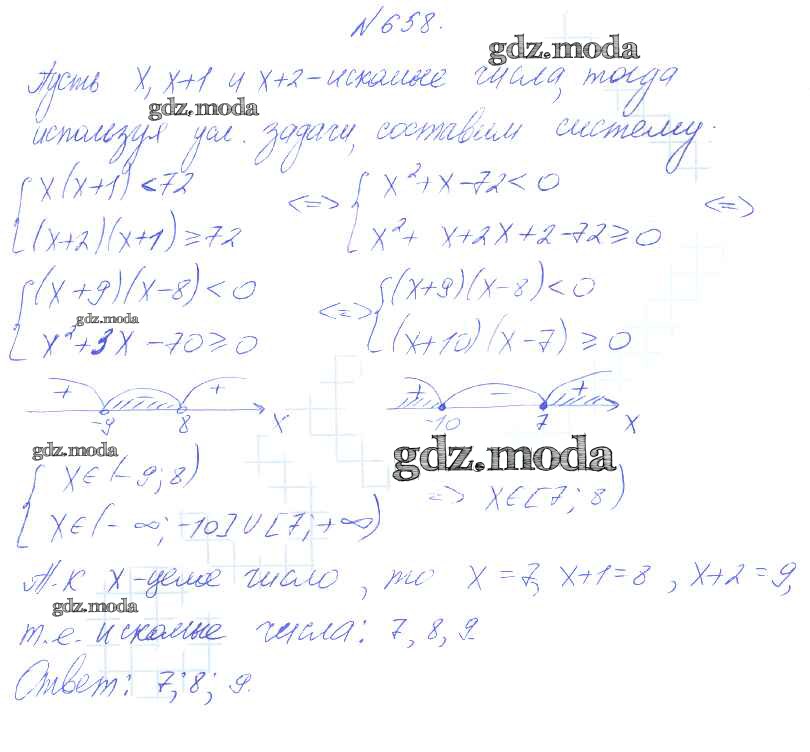 №658.
gdz.moda
Пусть x, x+1 и x+2 - искомые числа, тогда
gdz.moda
используя усл. задачи, составим систему:
{ x(x+1)<72 <=> { x²+x-72<0 <=>
(x+2)(x+1)≥72 x²+ x+2x+2-72≥0
{ (x+9)(x-8)<0 <=> { (x+9)(x-8)<0
gdz.moda
x²+3x-70≥0 (x+10)(x-7)≥0
+ - + + - +
-9 8 x -10 7 x
gdz.moda
gdz.moda
{ x∈(-9;8) => x∈[7;8)
x∈(-∞;-10]∪[7;+∞)
Т.к x-целое число, то x=7, x+1=8, x+2=9,
gdz.moda
т.е. искомые числа: 7, 8, 9.
Ответ: 7; 8; 9.